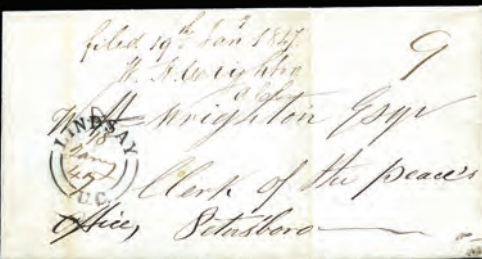 filed 19th Jan 1847
W. H. Wrighton
9
W H Wrighton Esqr
LINDSAY
18
Jany
47
U.C.
Clerk of the peace's
Office, Peterboro